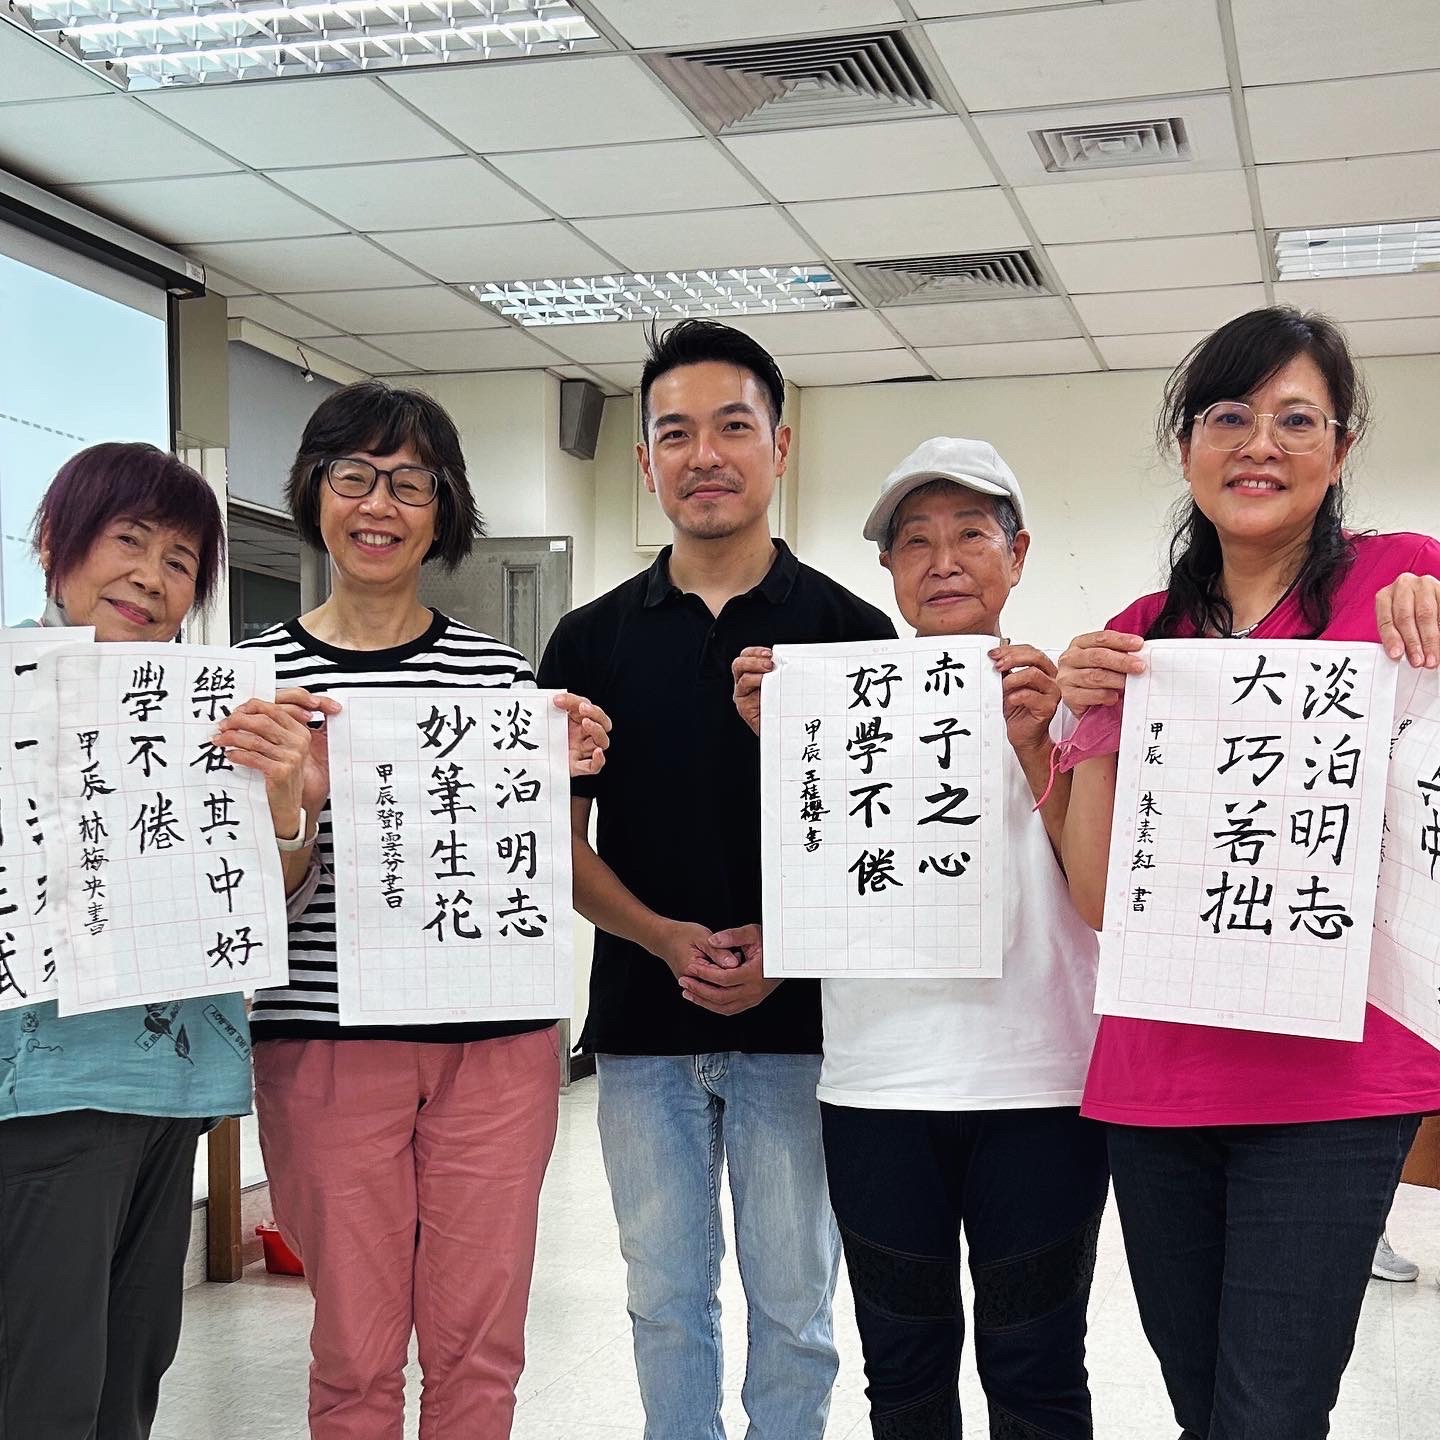 樂在其中好
學不倦
甲辰林梅央書
淡泊明志
妙筆生花
甲辰鄧雲芬書
赤子之心
好學不倦
甲辰王桂櫻書
淡泊明志
大巧若拙
甲辰 朱素紅書